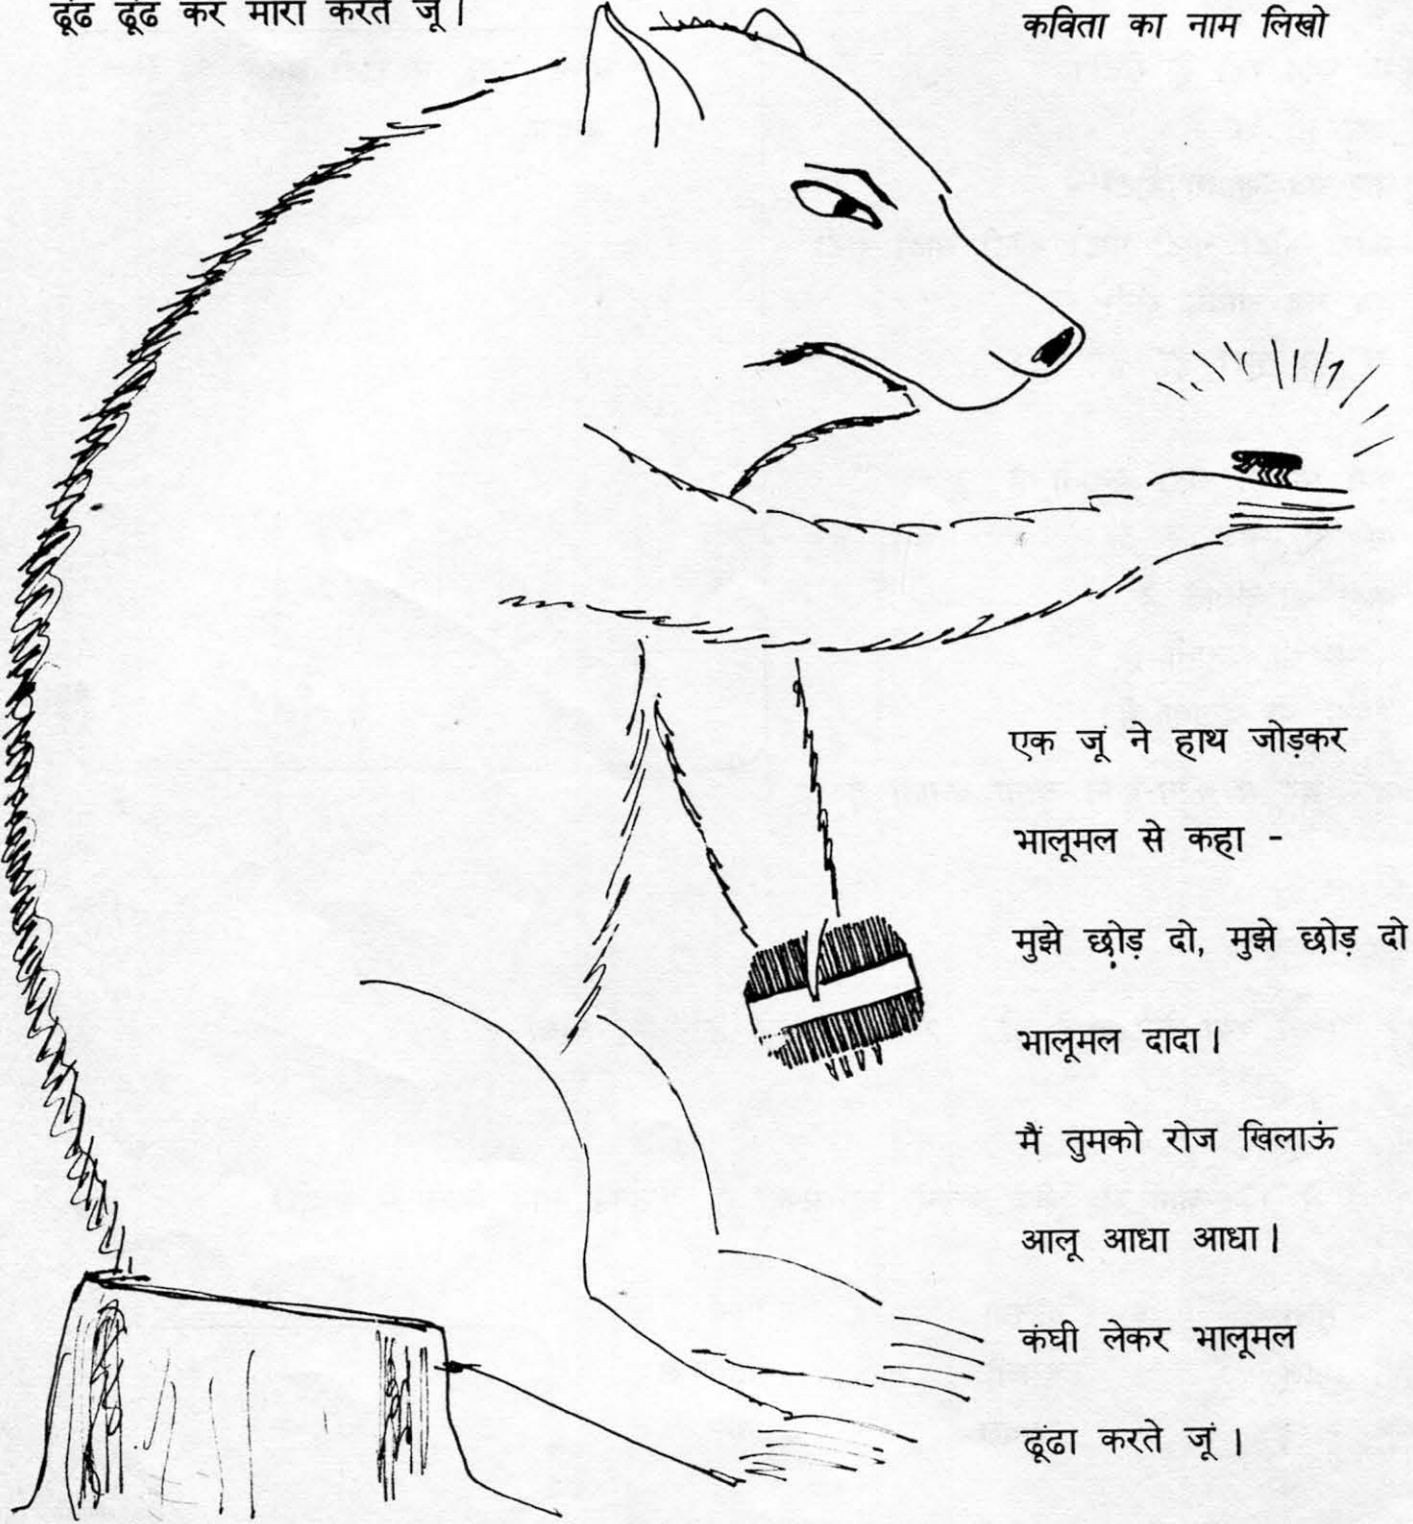 ढूंढ ढूंढ कर मारा करते जूं।
कविता का नाम लिखो
एक जूं ने हाथ जोड़कर
भालूमल से कहा -
मुझे छोड़ दो, मुझे छोड़ दो
भालूमल दादा।
मैं तुमको रोज खिलाऊं
आलू आधा आधा।
कंघी लेकर भालूमल
ढूंढा करते जूं।